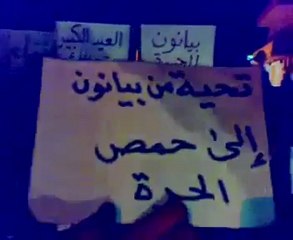 بيانون
العيد الكبير
تحية من بيانون
إلى حمص
الحرة